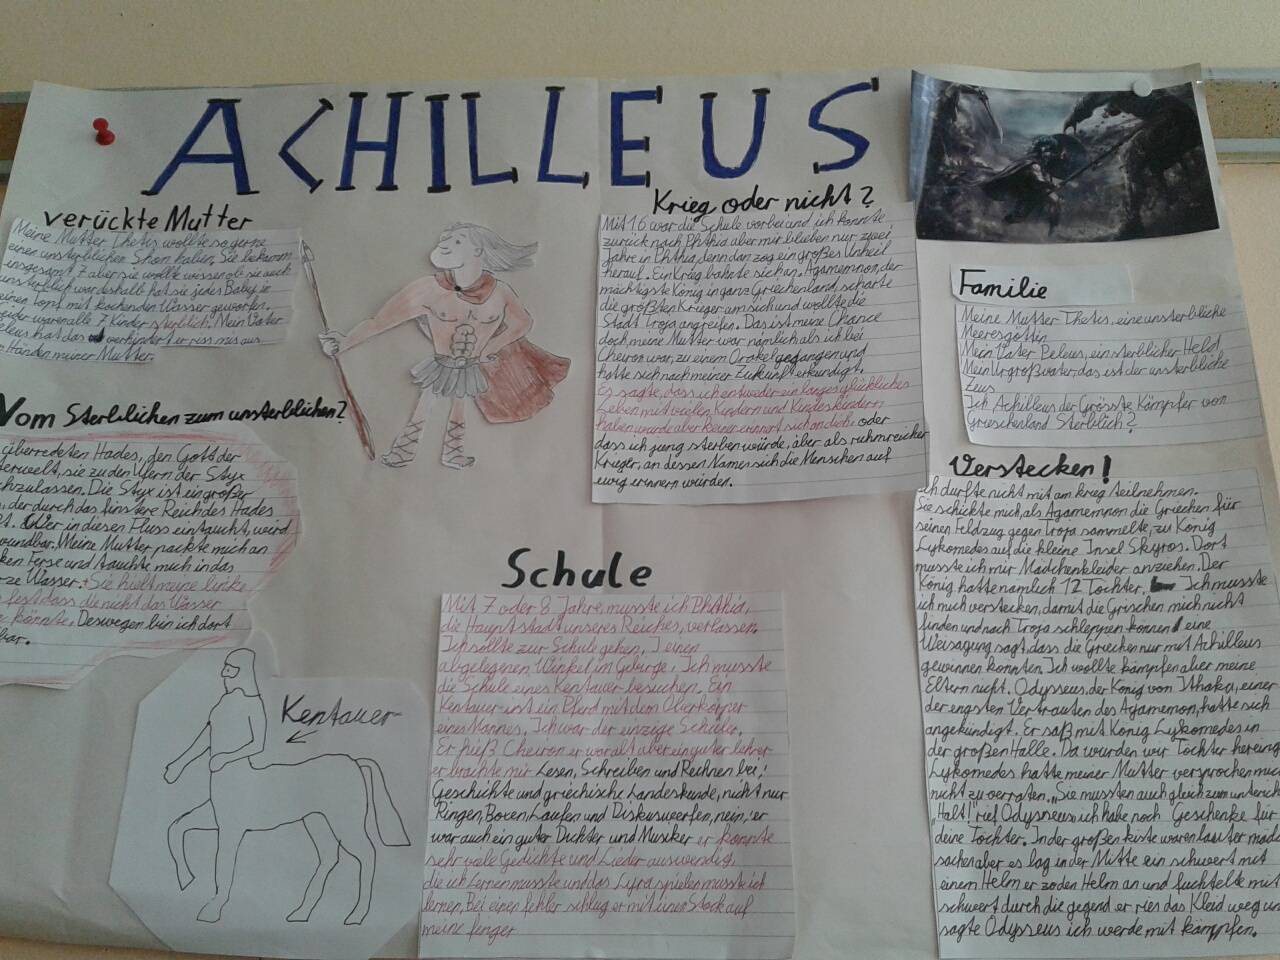 ACHILLEUS
verückte Mutter
Meine Mutter Thetis wollte so gerne
einen unsterblichen Shon haben, Sie bekamm
insgesamt 7 aber sie wollte wessen ob sie auch
unsterblich war deshalb hat sie jedes Baby in
einen Topf mit kochenden Wasser geworfen.
eider waren alle 7 Kinder sterblich. Mein Vater
eleus hat das verhindert er riss mis aus
Händen meiner Mutter.
Vom Sterblichen zum unsterblichen?
überredeten Hades, den Gott der
terwelt, sie zu den Ufern der Styx
chzulassen. Die Styx ist ein großer
, der durch das finstere Reich des Hades
t. Wer in diesen Fluss eintaucht, wird
wundbar. Meine Mutter packte mich an
ken Ferse und tauchte mich in das
rze Wasser. Sie hielt meine linke
fest dass die nicht das Wasser
könnte. Deswegen bin ich dort
bar.
Kentauer
Krieg oder nicht?
Mit 16 war die Schule vorbei und ich konnte
zurück nach Phthia aber mir blieben nur zwei
Jahre in Phthia, denn dan zog ein großes Unheil
herauf. Ein Krieg bahnte sich an. Agamemnon, der
mächtigste König in ganz Griechenland, scharte
die größten Krieger um sich und wollte die
Stadt Troja angreifen. Das ist meine Chance
doch, meine Mutter war nämlich als ich bei
Cheiron war, zu einem Orakel gegangen und
hatte sich nach meiner Zukunft erkundigt.
Es sagte, dass ich entweder ein langes glückliches
Leben mit vielen Kindern und Kindeskindern
haben würde aber keiner erinnert sich an dich oder
dass ich jung sterben würde, aber als ruhmreicher
Krieger, an dessen Namen sich die Menschen auf
ewig erinnern würden.
Schule
Mit 7 oder 8 Jahre musste ich Phthia,
die Hauptstadt unseres Reiches, verlassen.
Ich sollte zur Schule gehen, I einen
abgelegenen Winkel im Gebirge. Ich musste
die Schule eines Kentauer besuchen. Ein
Kentauer ist ein Pferd mit dem Oberkörper
eines Mannes. Ich war der einzige Schüler.
Er hieß Cheiron er war alt aber ein guter lehrer
er brachte mir Lesen, Schreiben und Rechnen bei,
Geschichte und griechische Landeskunde, nicht nur
Ringen, Boxen, Laufen und Diskuswerfen, nein, er
war auch ein guter Dichter und Musiker er konnte
sehr viele Gedichte und Lieder auswendig,
die ich Lernen musste und das Lyra spielen musste ich
lernen, Bei einen fehler schlug er mit einen Stock auf
meine finger
Familie
Meine Mutter Thetis, eine unsterbliche
Meeresgöttin
Mein Vater Peleus, ein sterblicher Held
Mein Urgroßvater, das ist der unsterbliche
Zeus
Ich Achilleus der Grösste Kämpfer von
Griechenland Sterblich?
Verstecken!
Ich durfte nicht mit am krieg teilnehmen.
Sie schickte mich, als Agamemnon die Griechen für
seinen Feldzug gegen Troja sammelte, zu König
Lykomedes auf die kleine Insel Skyros. Dort
musste ich mir Mädchenkleider anziehen. Der
König hatte nämlich 12 Töchter. Ich musste
ich mich verstecken, damit die Grischen mich nicht
finden und nach Troja schleppen können eine
Weissagung sagt, dass die Griechen nur mit Achilleus
gewinnen konnten. Ich wollte kämpfen aber meine
Eltern nicht. Odysseus, der König von Ithaka, einer
der engsten Vertrauten des Agamemnon, hatte sich
angekündigt. Er saß mit König Lykomedes in
der großen Halle. Da wurden wir Töchter hereing
Lykomedes hatte meiner Mutter versprochen mich
nicht zu verraten. „Sie mussten auch gleich zum unterich
„Halt!" rief Odysseus, ich habe noch Geschenke für
deine Töchter. In der großen kiste waren lauter mäd
sachen aber es lag in der Mitte ein schwert mit
einem Helm er zo den Helm an und fuchtelte mit
schwert durch die gegend er ries das Kleid weg un
sagte Odysseus ich werde mit kämpfen.